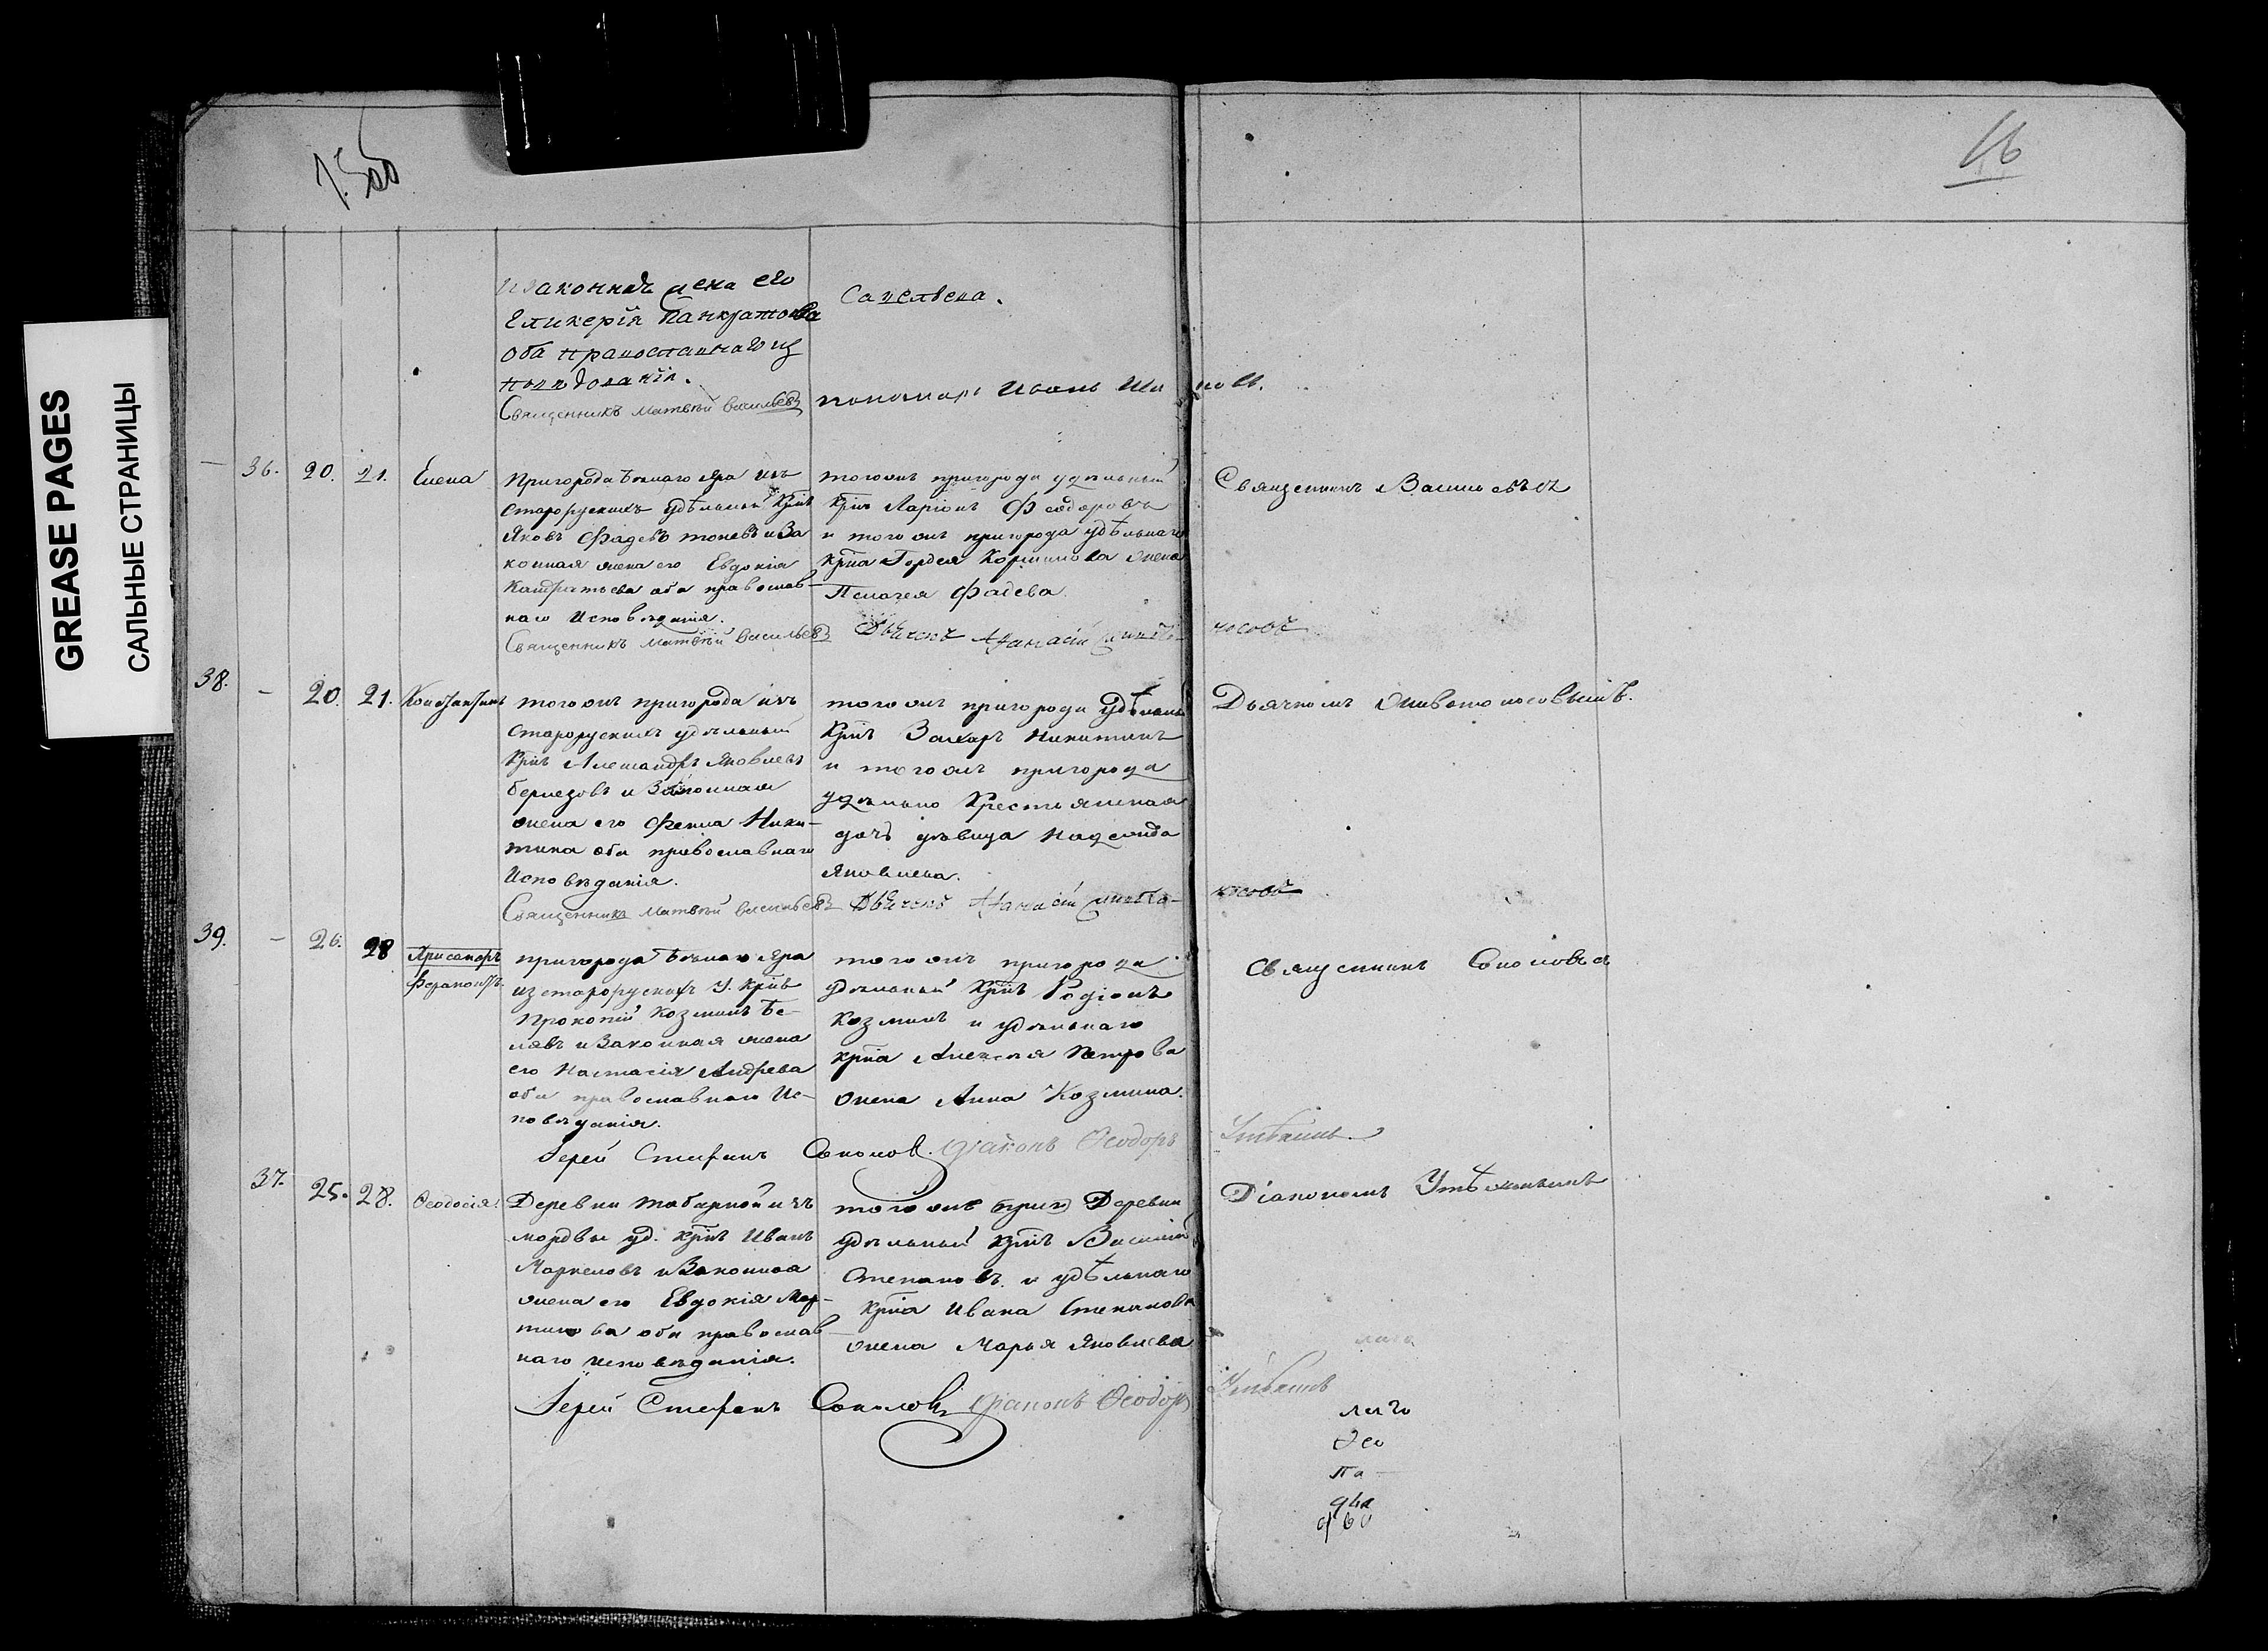 GREASE PAGES
САЛЬНЫЕ СТРАНИЦЫ
16
изаконная жена его
Гликерія Панкратова
оба православнаго ис
повѣданія.
Священникъ Матвѣй Васильевъ
Савельева.
пономарь Иванъ
36. 20. 21. Елена
Пригорода Бѣлаго Яра изъ
старорускихъ удѣльный Крнъ
Яковъ Фадевъ и За
конная жена его Евдокія
Кандратьева оба православ-
наго Исповѣданія.
Священникъ Матвѣй Васильевъ
тогожъ пригорода удѣльный
Крнъ Ларіонъ Феодоровъ
и тогожъ пригорода удѣльнаго
Крна Гордея Корнилова жена
Пелагея Фадева.
Дьячекъ Афанасій Живото-
носовъ
Священникъ Васильевъ
38. - 20. 21. Константинъ
тогожъ пригорода изъ
старорускихъ удѣльный
Крнъ Александръ Яковлевъ
и Законная
жена его Фекла Ники-
тина оба православнаго
Исповѣданія.
Священникъ Матвѣй Васильевъ
тогожъ пригорода удѣльный
Крнъ Захаръ Никитинъ
и тогожъ пригорода
удѣльно Крестьянская
дочь дѣвица Надежда
Яковлева.
Дьячекъ Афанасій Живото-
носовъ
Дьячкомъ Животоносовымъ.
39. - 26. 28
Хрисанфъ
Ферапонтъ
пригорода Бѣлаго Яра
изстарорускихъ У. Крнъ
Прокопій Козминъ Бе-
ляевъ и Законная жена
его Настасія Андрева
оба православнаго Ис-
повѣданія.
Іерей Стефанъ Соколовъ. Діаконъ Феодоръ
тогожъ пригорода
удѣльный Крнъ Родіонъ
Козминъ и удѣльнаго
крна Алексѣя Петрова
жена Анна Козмина.
Священникъ Соколовъ
37. 25. 28. Феодосія.
Деревни Табарной изъ
мордвы уд. крнъ Иванъ
Маркеловъ и Законная
жена его Евдокія Мар-
тинова оба православ-
наго исповѣданія.
Іерей Стефанъ Соколовъ Діаконъ Феодоръ
тогожъ приг Деревни
удѣльный крнъ Василій
Степановъ и удѣльнаго
крна Ивана Степанова
жена Марья Яковлева
Діакономъ
Ѳео
Па